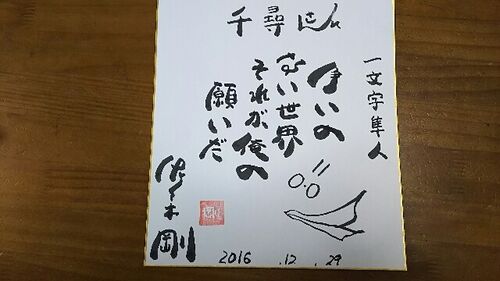 千尋さん
一文字隼人
争いの
ない世界
それが俺の
願いだ
佐々木剛
2016.12.29